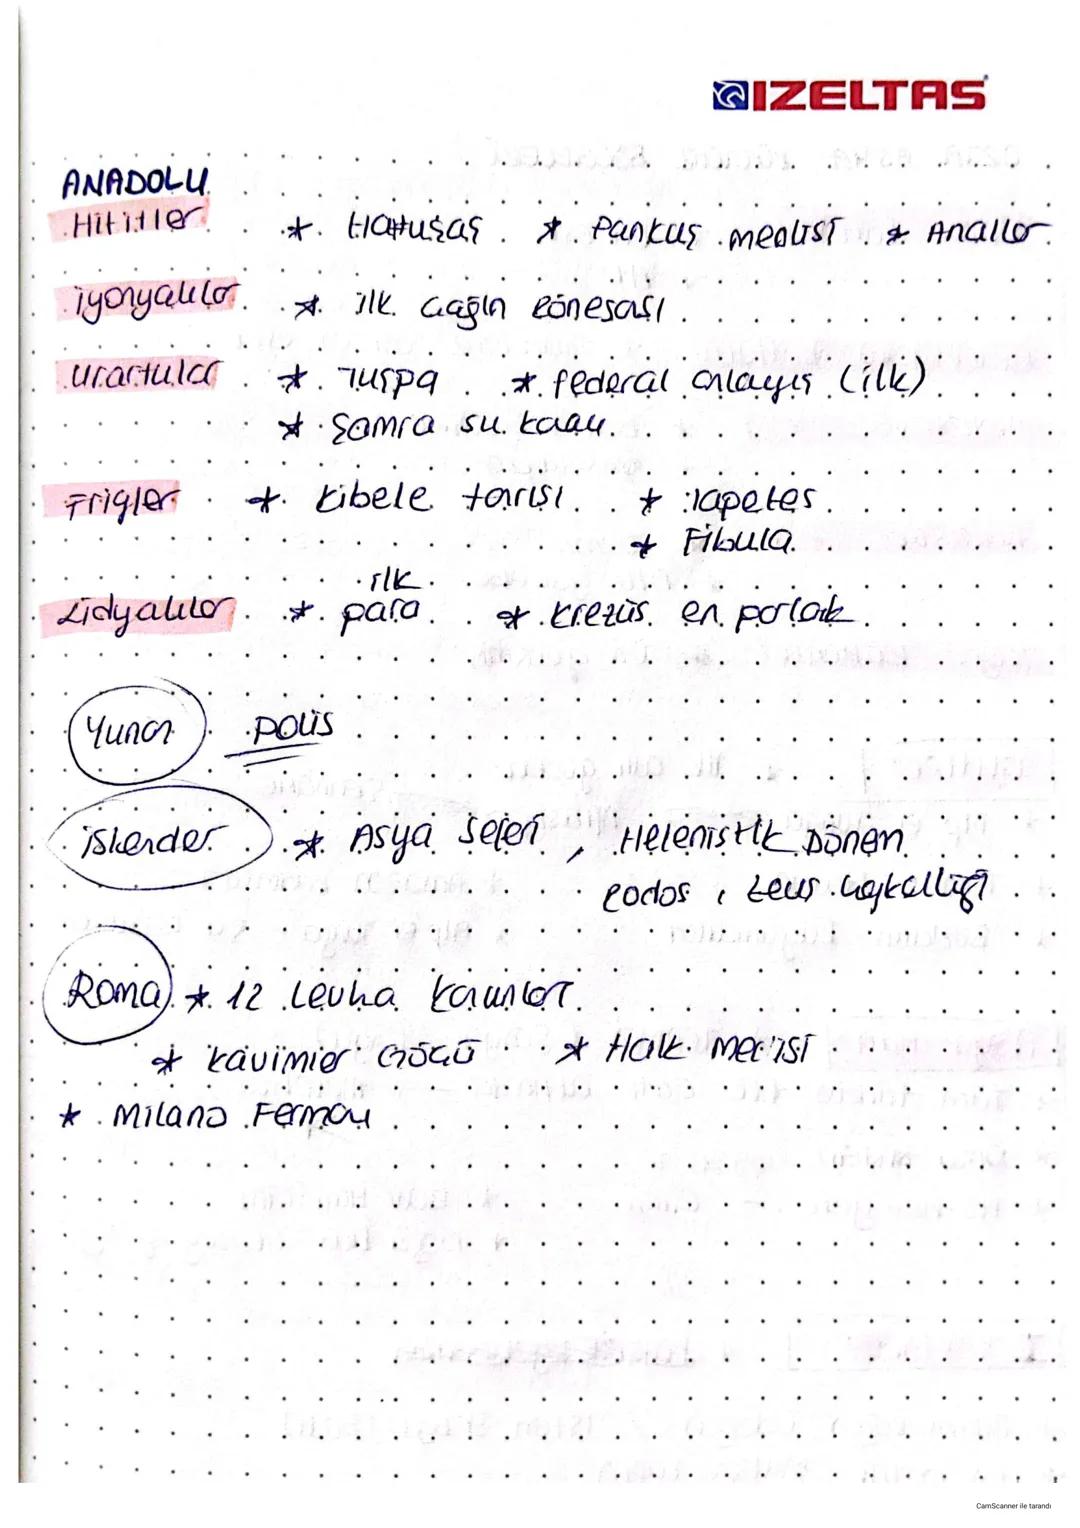 IZELTAS
ANADOLU
Hititler * Hattuşaş * Pankuş meclisi * Anallar
iyonyalılar * ilk çağın Rönesası
Urartular * Tuşpa * federal anlayış (ilk)
* Şamra su kanalı
Frigler * Kibele tanrısı * Tapetes
* Fibula
ilk
Lidyalılar * para * Krezüs en parlak
Yunan POLİS
iskender * Asya Seferi , Helenistik Dönem
Rodos , Zeus heykelliği
Roma * 12 Levha Kanunları
* Kavimler Göçü * Halk Meclisi
* Milano Fermanı
CamScanner ile tarandı